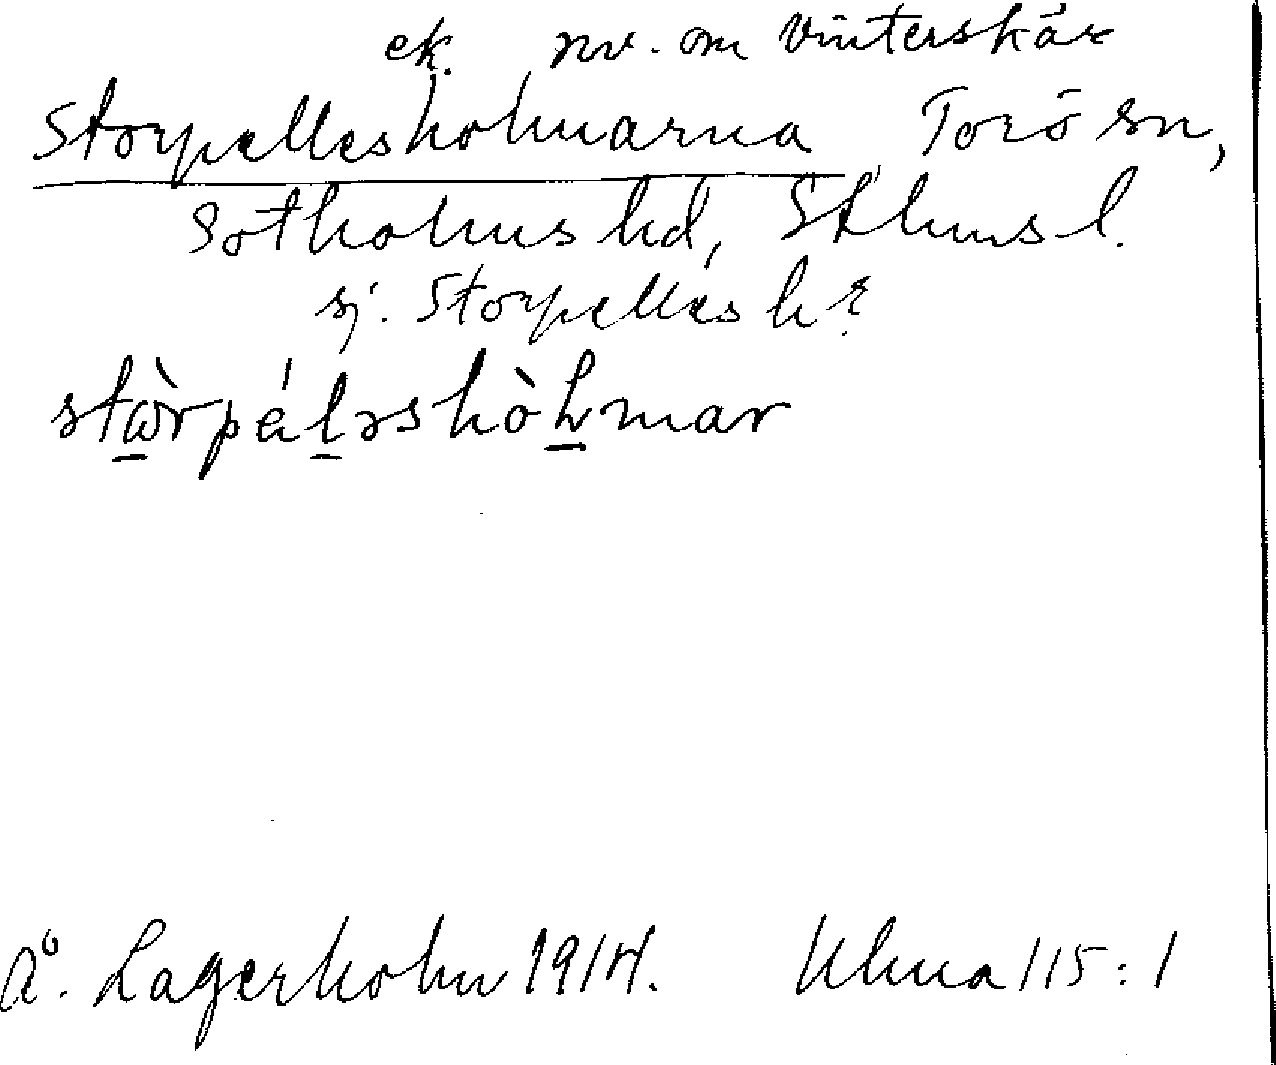 ek. nv. om Vinterskär
Storpellesholmarna Torö sn,
Sotholms hd, Sthlms l.
sj. Storpelles h?
stɷ̀rpélǝshòlmar
Å. Lagerholm 1914. Uhma 115:1